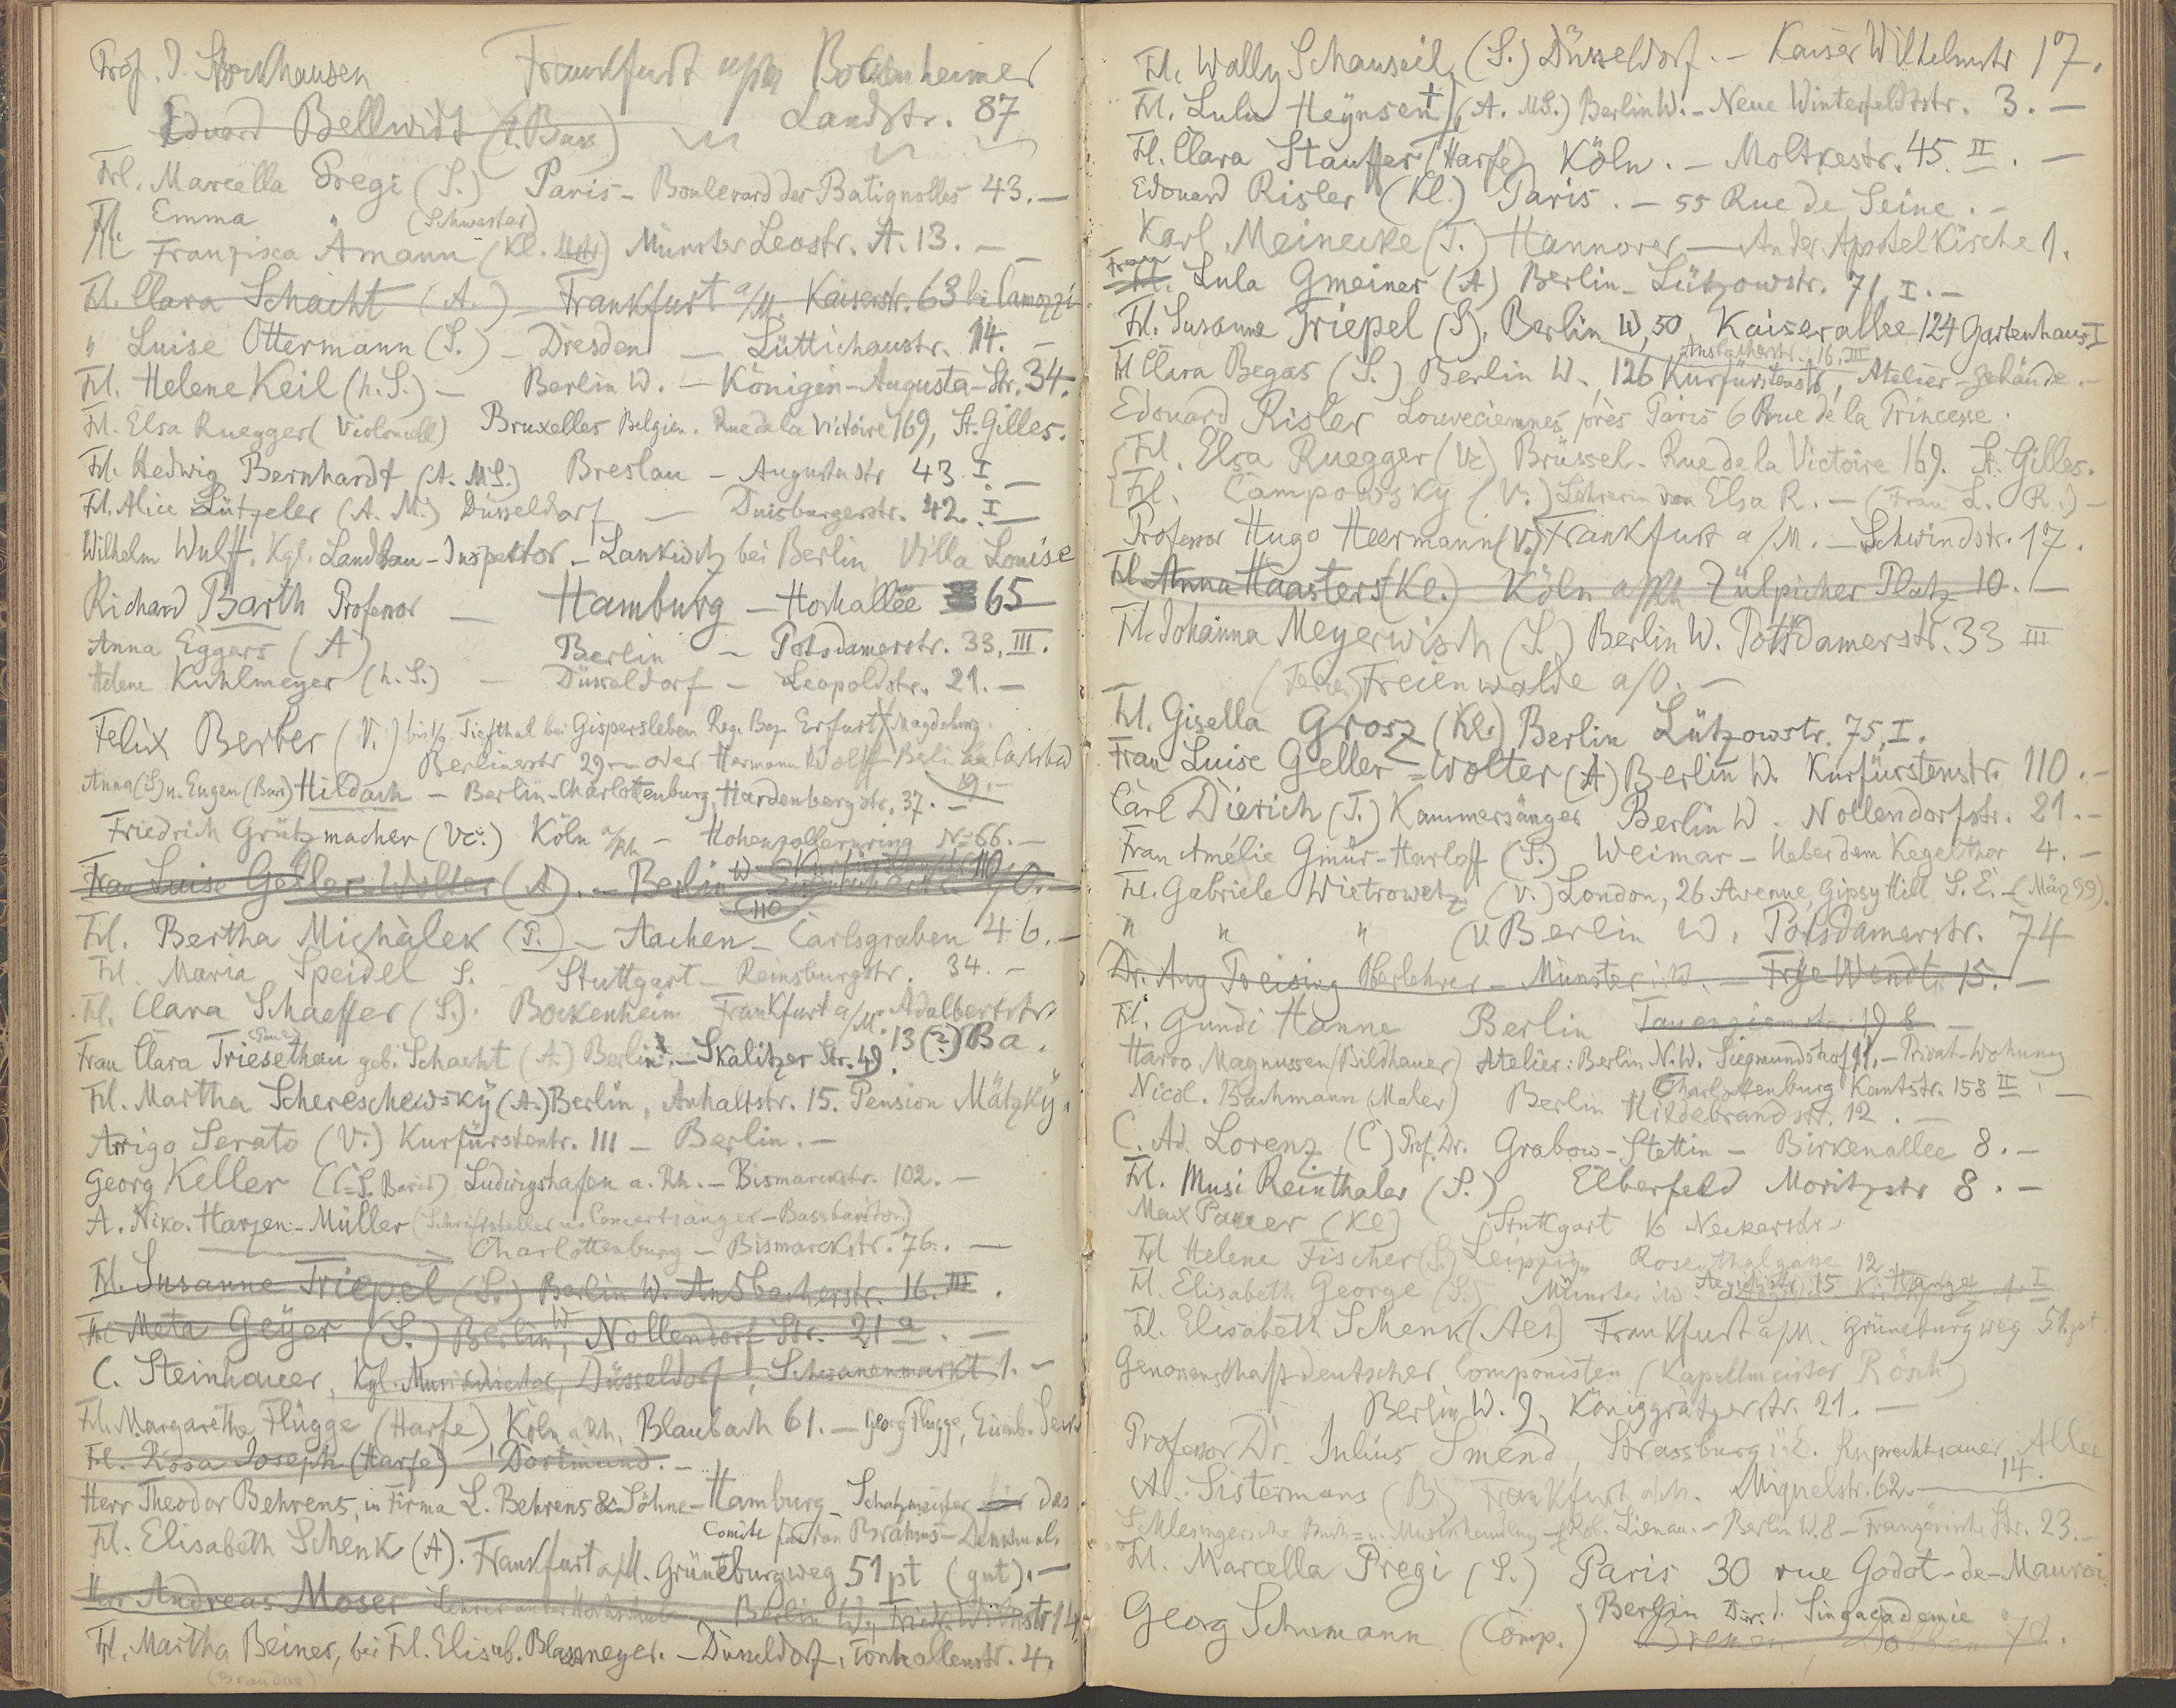 Prof. J. Stockhausen Frankfurt a/M Bockenheimer
Landstr. 87
Eduard Bellwidt (Bass)
Frl. Marcella Pregi (S.) Paris - Boulevard des Batignolles 43. -
Frl. Emma " (Schwester)
Frl. Franzisca Amann (Kl.) Münster Leostr. A. 13. -
Frl. Clara Schacht (A.) - Frankfurt a/M. Kaiserstr. 63 bei Camozzi
" Luise Ottermann (S.) - Dresden - Lüttichaustr. 14. -
Frl. Helene Keil (h. S.) - Berlin W. - Königin-Augusta-Str. 34.
Frl. Elsa Ruegger (Violoncell) Bruxelles Belgien. Rue de la Victoire 169, St. Gilles.
Frl. Hedwig Bernhardt (A. MS.) Breslau - Augustastr 43 I. -
Frl. Alice Lützeler (A. M.) Düsseldorf - Duisburgerstr. 42. I -
Wilhelm Wulff. Kgl. Landbau-Inspektor - Lankwitz bei Berlin Villa Louise
Richard Barth Professor - Hamburg - Hochallee 65
Anna Eggers (A) Berlin - Potsdamerstr. 33, III.
Helene Kuhlmeyer (h. S.) - Düsseldorf - Leopoldstr. 21. -
Felix Berber (V.) Tiefthal bei Gispersleben Reg. Bez. Erfurt Magdeburg.
Berlinerstr 29 - oder Hermann Wolff Berlin Carlsbad
19. -
Anna (S) u. Eugen (Bar.) Hildach - Berlin-Charlottenburg, Hardenbergstr. 37. -
Friedrich Grützmacher (Vc.) Köln a/Rh - Hohenzollernring No 66. -
Frau Luise Geller-Wolter (A). - Berlin W Kurfürstenstr. 110
110
Frl. Bertha Michàlek (T.) - Aachen - Carlsgraben 46. -
Frl. Maria Speidel S. - Stuttgart - Reinsburgstr. 34. -
Frl. Clara Schaeffer (S.). Bockenheim Frankfurt a/M. Adalbertstr.
13 (?) Ba.
Frau Clara Triesethau geb. Schacht (A) Berlin. - Skalitzer Str. 49.
Frl. Martha Schereschewsky (A.) Berlin, Anhaltstr. 15. Pension Mätzky.
Arrigo Serato (V.) Kurfürstenstr. 111 - Berlin. -
Georg Keller Ludwigshafen a. Rh. - Bismarckstr. 102. -
A. Niko. Harzen-Müller (Schriftsteller u. Concertsänger - Bassbariton)
Charlottenburg - Bismarckstr. 76. -
Frl. Susanne Triepel (S.) Berlin W. Ansbacherstr. 16. III.
Frl Meta Geyer (S.) Berlin W, Nollendorf Str. 21 a. -
C. Steinhauer, Kgl. Musikdirector, Düsseldorf, Schwanenmarkt 1. -
Frl. Margarethe Flügge (Harfe), Köln a Rh, Blaubach 61. - Georg Flügge, Eisenb. Secr
Frl. Rosa Joseph (Harfe) Dortmund. -
Herr Theodor Behrens, in Firma L. Behrens & Söhne - Hamburg Schatzmeister für das
Comité Brahms-Denkmal.
Frl. Elisabeth Schenk (A). Frankfurt a/M. Grüneburgweg 51 pt (gut). -
Herr Andreas Moser Lehrer an der Hochschule - Berlin W., Friedr. Wilhstr 14
Frl. Martha Beines, bei Frl. Elisab. Blasmeyer. - Düsseldorf, Tonhallenstr. 4.
Frl. Wally Schauseil (S.) Düsseldorf. - Kaiser Wilhelmstr 17.
Frl. Lulu Heynsen † (A. MS.) Berlin W. - Neue Winterfeldtstr. 3. -
Frl. Clara Stauffer (Harfe) Köln. - Moltkestr. 45 II. -
Edouard Risler (Kl.) Paris. - 55 Rue de Seine. -
Karl Meinecke (T.) Hannover - An der Apostelkirche 1.
Frau Lula Gmeiner (A) Berlin - Lützowstr. 71, I. -
Frl. Susanne Triepel (S). Berlin W, 50 Kaiserallee 124 Gartenhaus I
Ansbacherstr. 16, III
Frl Clara Begas (S.) Berlin W., 126 Kurfürstenstr, Atelier-Gebäude. -
Edouard Risler Louveciennes près Paris 6 Rue de la Princesse.
Frl. Elsa Ruegger (Vc) Brüssel - Rue de la Victoire 169. St. Gilles.
Frl. Campowsky (V.) Lehrerin von Elsa R. - (Frau L. R.) -
Professor Hugo Heermann (V.) Frankfurt a/M. - Schwindstr. 17.
Frl. Anna Haasters (Kl.) Köln a/Rh Zülpicher Platz 10. -
Frl. Johanna Meyerwisch (S.) Berlin W. Potsdamerstr. 33 III
(Ferien) Freienwalde a/O. -
Frl. Gisella Grosz (Kl.) Berlin Lützowstr. 75, I.
Frau Luise Geller-Wolter (A) Berlin W. Kurfürstenstr. 110. -
Carl Dierich (T.) Kammersänger Berlin W - Nollendorfstr. 21. -
Frau Amélie Gmür-Harloff (S.) Weimar - Ueber dem Kegelthor 4. -
Frl. Gabriele Wietrowetz (V.) London, 26 Avenue, Gipsy Hill S. E. - (März 99).
" " " (V. Berlin W. Potsdamerstr. 74
Dr. Aug Preising Oberlehrer - Münster i. W. - Frye Wendt. 15. -
Frl. Gundi Hanne Berlin Tauenzienstr. 19 b -
Harro Magnussen (Bildhauer) Atelier: Berlin N. W. Siegmundshof 11. - Privat-Wohnung
Charlottenburg Kantstr. 158 II. -
Nicol. Bachmann (Maler) Berlin Hildebrandstr. 12. -
C. Ad. Lorenz (C) Prof. Dr. Grabow-Stettin - Birkenallee 8. -
Frl. Musi Reinthaler (S.) Elberfeld Moritzstr 8. -
Max Pauer (Kl) Stuttgart 16 Neckarstr.
Frl Helene Fischer (S.) Leipzig, Rosenthalgasse 12
Frl. Elisabeth George (S.) Münster i. W. Aegidiistr 15
Frl. Elisabeth Schenk (Aes) Frankfurt a/M. Grüneburgweg 51 pt
Genossenschaft deutscher Componisten (Kapellmeister Rösch)
Berlin W. 9, Königgrätzerstr. 21. -
Professor Dr. Julius Smend, Strassburg i. E. Ruprechtsauer Allee
14.
A. Sistermans (B) Frankfurt a/M. Miquelstr. 62. -
Schlesingersche Buch- u. Musikhandlung Rob. Lienau. - Berlin W. 8 - Französische Str. 23. -
Frl. Marcella Pregi (S.) Paris 30 rue Godot-de-Mauroi.
Georg Schumann (Comp.) Berlin Dir. d. Singacademie
Bremen, Dobben 70.